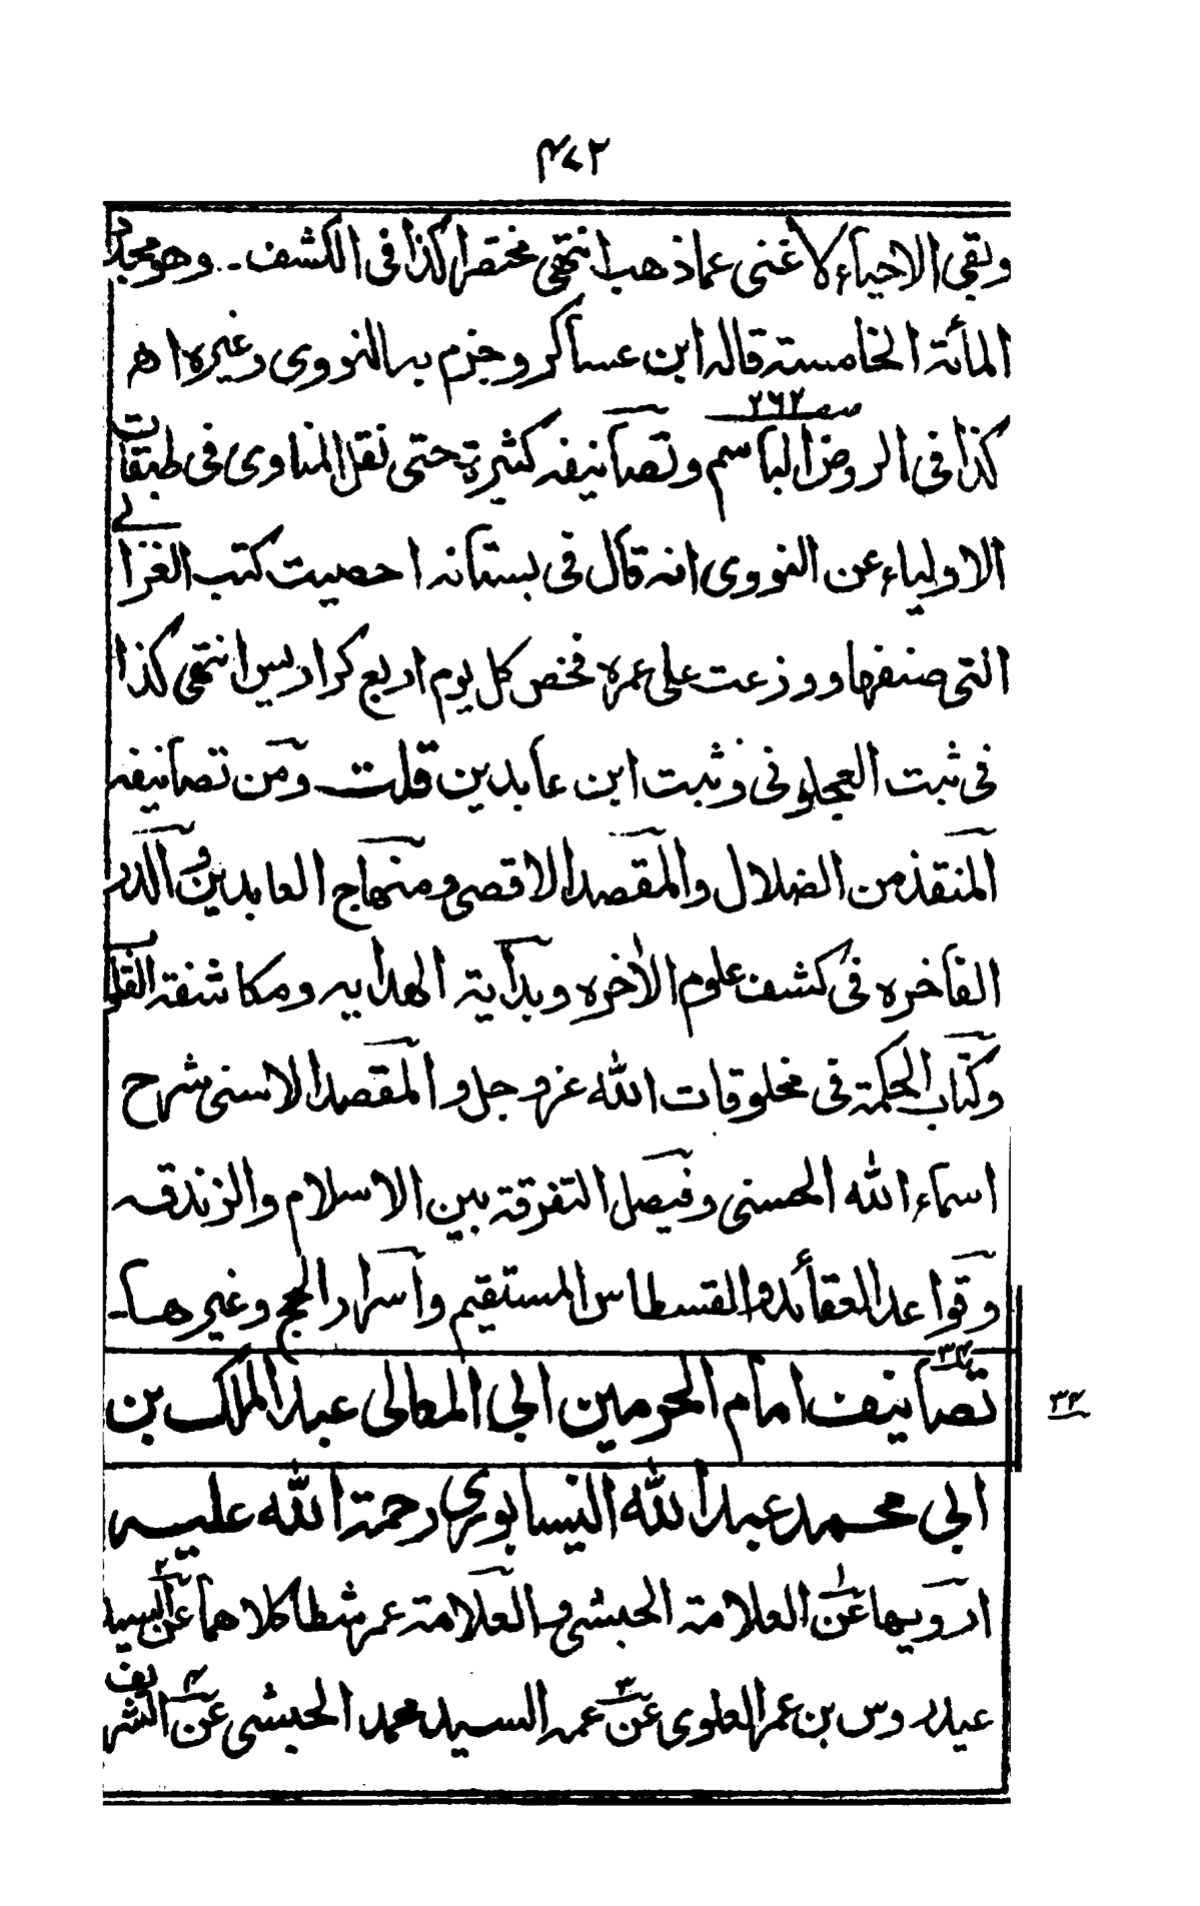 ٤٧٢
وبقي الاحياء لاغنى عما ذهب انتهى مختصرا كذا فى الكشف۔ وهو مجدد
المائة الخامسة قاله ابن عساكر وجزم به النووى وغيره اه
ص ٢٦٢
كذا فى الروض الباسم وتصانيفه كثيرة حتى نقل المناوى فى طبقات
الاولياء عن النووى انه قال فى بستانه احصيت كتب الغزالي
التى صنفها ووزعت على عمره فخص كل يوم اربع كراريس انتهى كذا
فى ثبت العجلونى وثبت ابن عابدين قلت ومن تصانيفه
المنقذ من الضلال والمقصد الاقصى ومنهاج العابدين والدر
الفاخره فى كشف علوم الاخره وبداية الهدايه ومكاشفة القلو
وكتاب الحكمة فى مخلوقات الله عز وجل والمقصد الاسنى شرح
اسماء الله الحسنى وفيصل التفرقة بين الاسلام والزندقه
وقواعد العقائد والقسطاس المستقيم واسرار الحج وغيرها۔
تصانيف امام الحرمين ابى المعالى عبد الملك بن
٣٤
ابى محمد عبد الله النيسابورى رحمة الله عليه
ارويها عن العلامة الحبشى والعلامة عمر شطا كلاهما عن السيد
عيدروس بن عمر العلوى عن عمه السيد محمد الحبشى عن الشريف